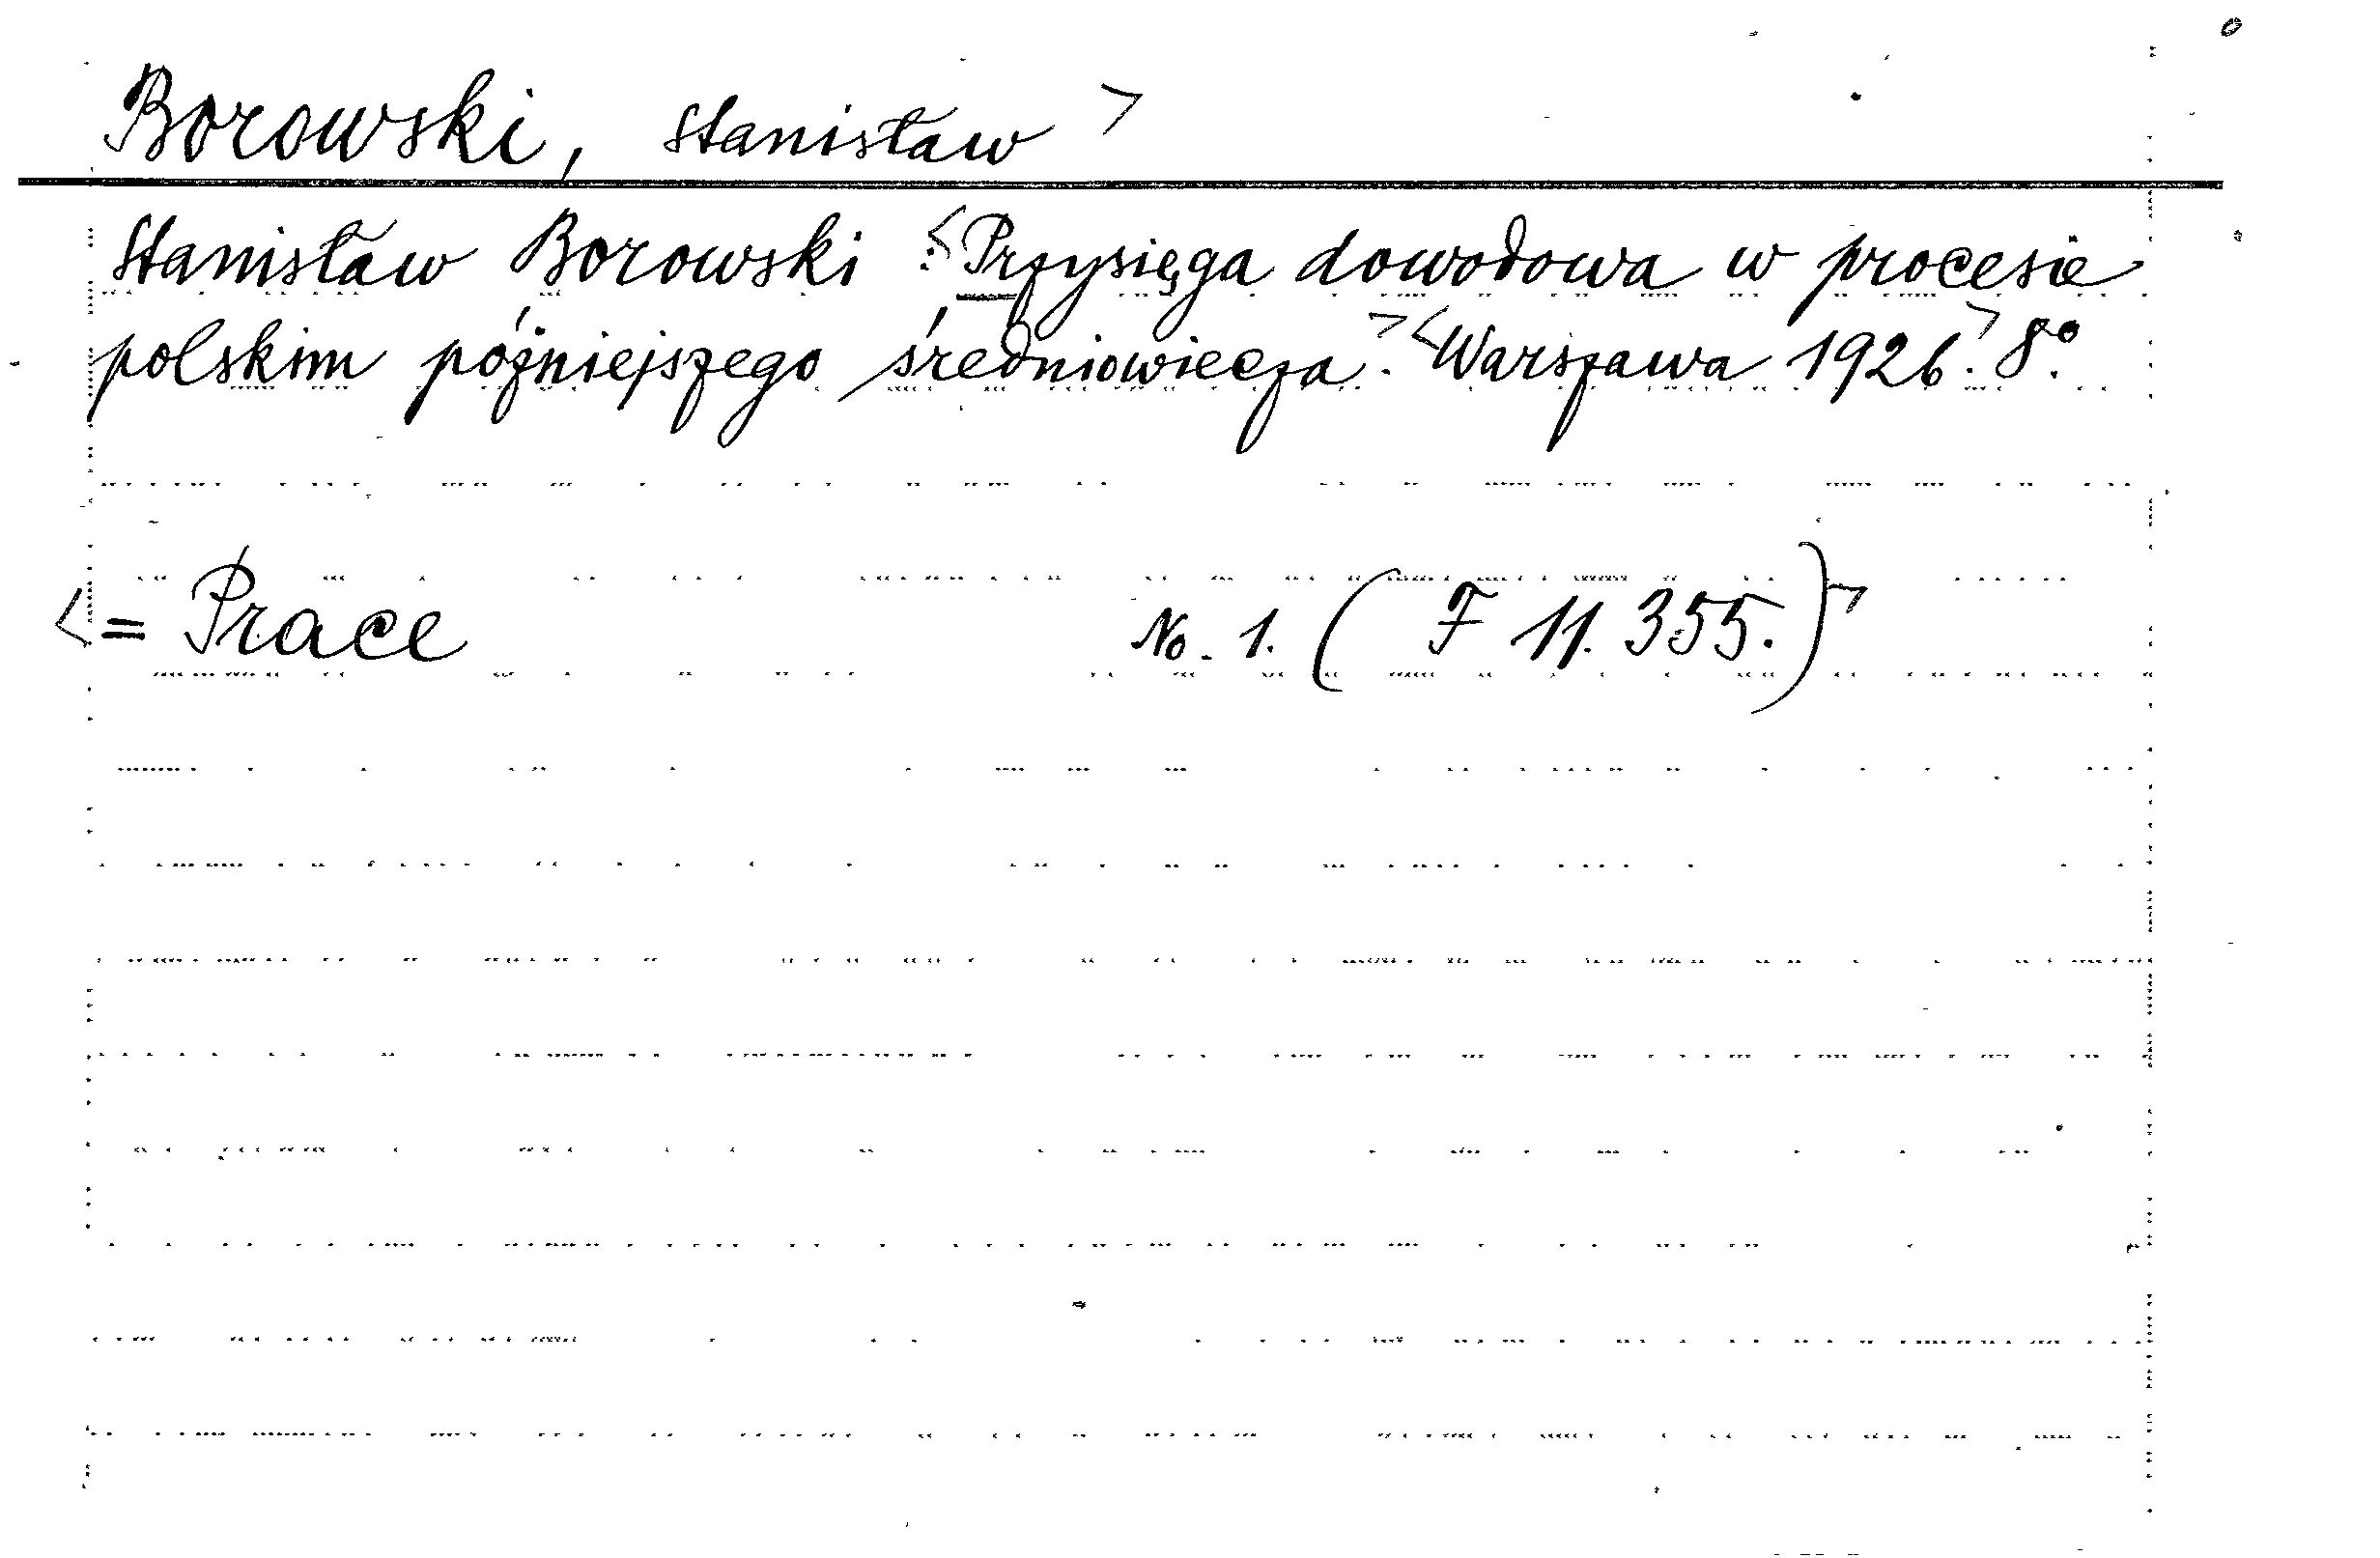 Borowski, Stanisław >
Stanisław Borowski : <Przysięga dowodowa w procesie
polskim późniejszego średniowiecza.> <Warszawa 1926.> 8°.
<= Prace No. 1. ( F 11.355.)>